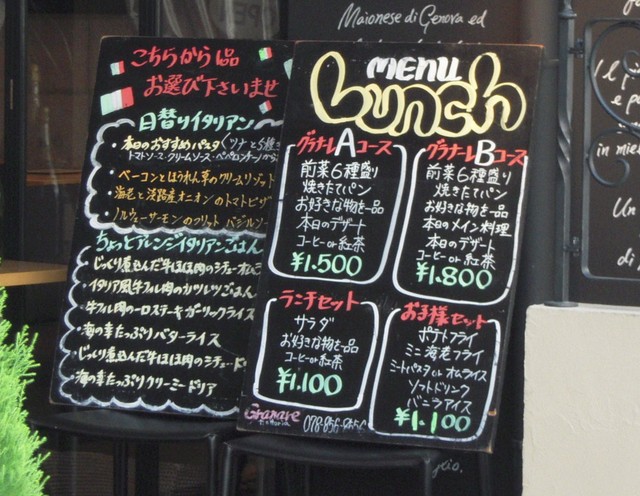 Maionese di Genova ed
こちらから1品
お選び下さいませ
日替りイタリアン
・本日のおすすめパスタ
トマトソース・クリームソース・ペペロンチーノから
・ベーコンとほうれん草のクリームリゾット
・海老と淡路産オニオンのトマトピザ
・ノルウェーサーモンのフリット バジルソー
ちょっとアレンジイタリアンごはん
・じっくり煮込んだ牛ほほ肉のシチューオム
・イタリア風牛フィル肉のカツレツごはん
・牛フィル肉のロースステーキガーリックライス
・海の幸たっぷりバターライス
・じっくり煮込んだ牛ほほ肉のシチュード
・海の幸たっぷりクリーミードリア
MENU
Lunch
グラナーレAコース
前菜6種盛り
焼きたてパン
お好きな物を一品
本日のデザート
コーヒーor紅茶
¥1.500
グラナーレBコース
前菜6種盛り
焼きたてパン
お好きな物を一品
本日のメイン料理
本日のデザート
コーヒーor紅茶
¥1.800
ランチセット
サラダ
お好きな物を一品
コーヒーor紅茶
¥1.100
お子様セット
ポテトフライ
ミニ海老フライ
ミートパスタorオムライス
ソフトドリンク
バニラアイス
¥1.100
Granare
in miel
Un
di